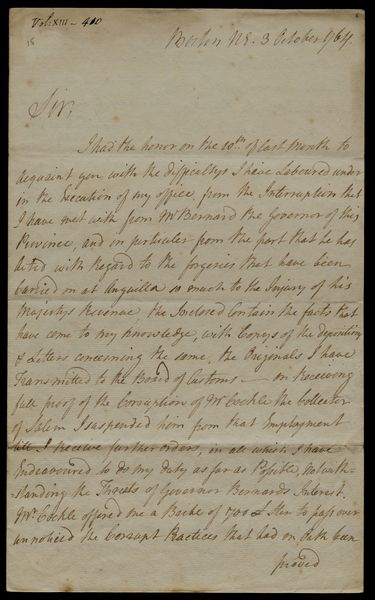 Vol: XIII - 400
Boston NE. 3 October 1764.
Sir,
I had the honor on the 10th of last Month to
acquaint you with the difficultys I have Laboured under
in the Execution of my office, from the Interruption that
I have met with from Mr Bernard the Governor of this
Province, and in particular from the part that he has
acted with Regard to the forgeries that have been
Carried on at Anguilla so much to the Injury of his
Majestys Revenue, the Inclosed Contain the facts that
have come to my knowledge, with Copys of the depositions
& Letters concerning the same, the Originals I have
Transmitted to the Board of Customs — on Receiving
full proof of the Corruption of Mr Cockle the Collector
of Salem I suspended him from that Employment
till I receive further orders, in all which I have
Endeavoured to do my duty as far as Possible, Notwith-
-standing the Threats of Governor Bernards Interest.
Mr Cockle offered me a Bribe of 700£ Ster to pass over
unnoticed the Corrupt Practices that had on Oath been
proved